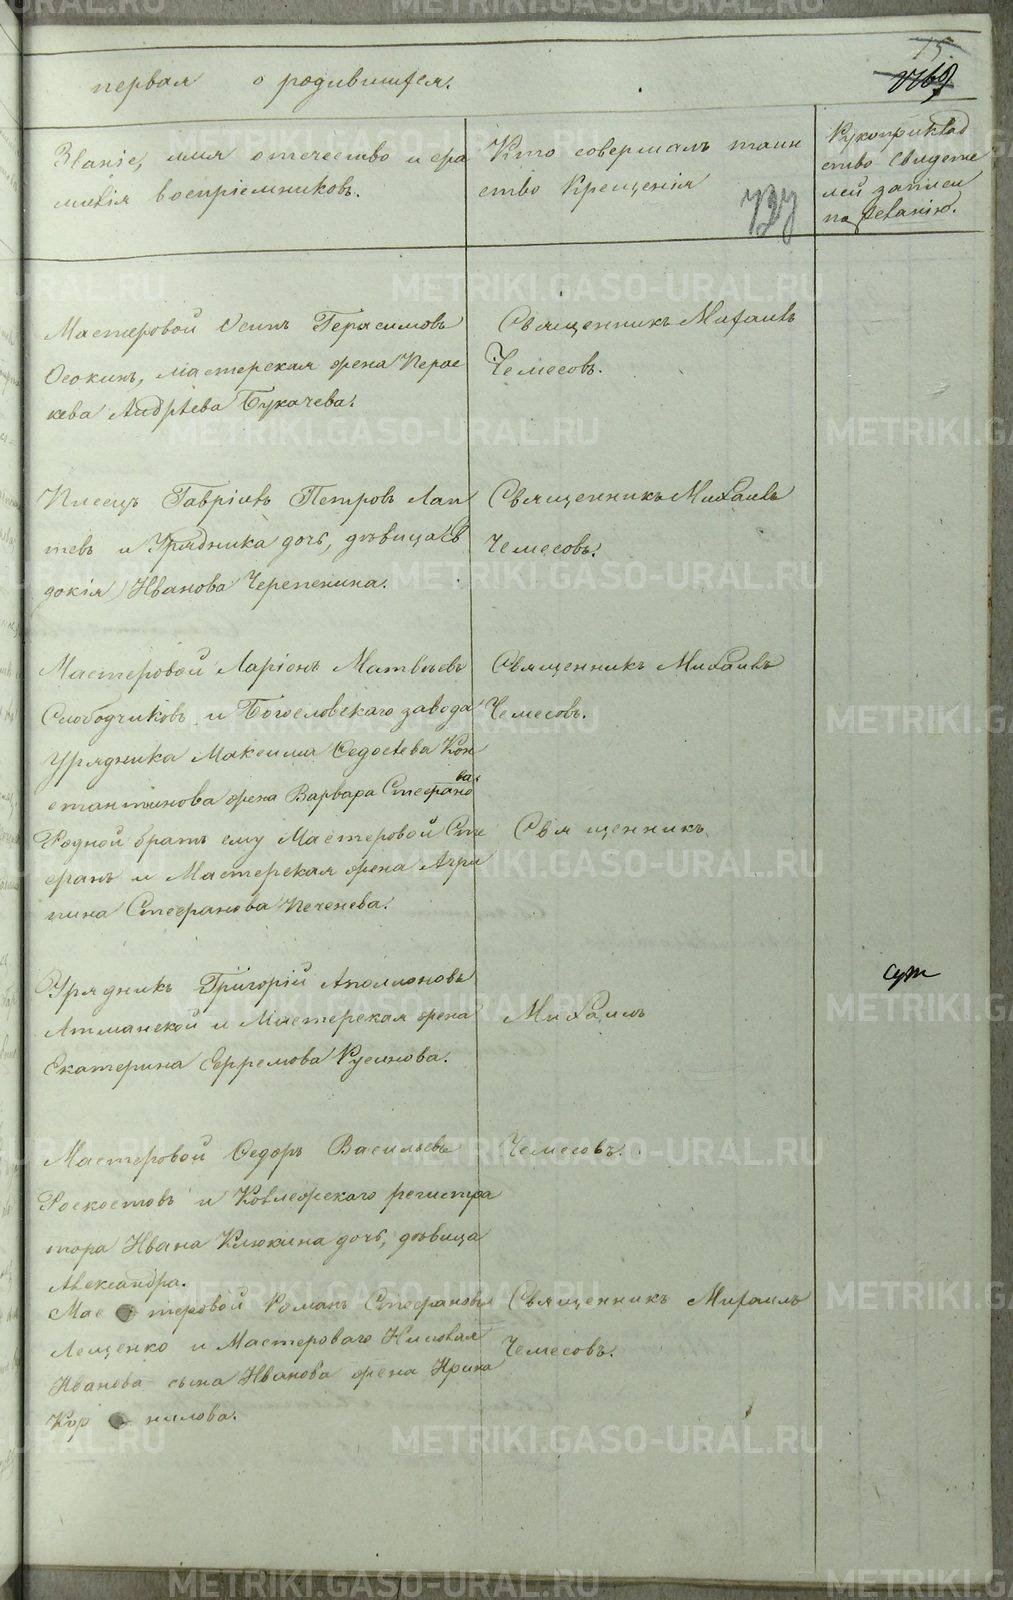 первая о родившихся.
Званіе, имя отечество и фа
милія воспріемниковъ.
Кто совершалъ таин
ство Крещенія
727
Рукоприклад
ство свидете
лей записи
по желанію.
Мастеровой Осипъ Герасимовъ
Осокинъ, мастерская жена Парас
кева Андрѣева Букачева.
Священникъ Михаилъ
Чемесовъ.
Писецъ Гавріилъ Петровъ Лап
тевъ и Урядника дочь, дѣвица Ев
докія Иванова Черепенина.
Священникъ Михаилъ
Чемесовъ.
Мастеровой Ларіонъ Матвѣевъ
Слободчиковъ и Богословскаго завода
Урядника Максима Федосѣева Кон
стантинова жена Варвара Стефано
ва.
Священникъ Михаилъ
Чемесовъ.
Родной братъ ему Мастеровой Сте
фанъ и Мастерская жена Агри
пина Стефанова Печенева.
Священникъ
Урядникъ Григорій Аполлоновъ
Атманской и Мастерская жена
Екатерина Ефремова Русинова.
Михаилъ
Мастеровой Федоръ Васильевъ
Роскостовъ и Коллежскаго регистра
тора Ивана Клюкина дочь, дѣвица
Александра.
Чемесовъ.
Мас теровой Романъ Стефановъ
Лещенко и Мастероваго Николая
Иванова сына Иванова жена Ирина
Кор нилова.
Священникъ Михаилъ
Чемесовъ.
METRIKI.GASO-URAL.RU